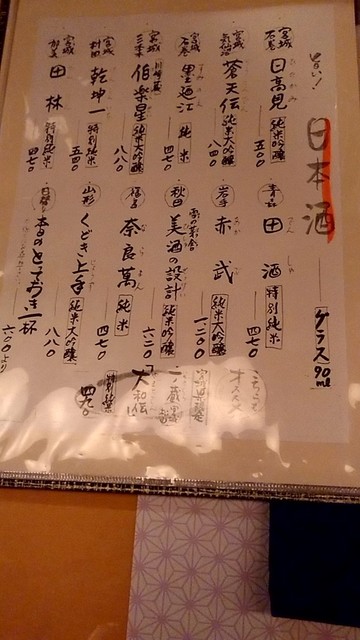 旨い!
日本酒
グラス90ml
宮城
石巻
日高見
純米大吟醸
五〇〇
宮城
気仙沼
蒼天伝
純米大吟醸
八四〇
宮城
石巻
墨廼江
純米
四七〇
宮城
三本木
伯楽星
純米大吟醸
八八〇
宮城
村田
乾坤一
特別純米
五四〇
宮城
加美
田林
特別純米
四七〇
青森
田酒
特別純米
四七〇
岩手
赤武
純米大吟醸
一二〇〇
秋田
雪の茅舎
美酒の設計
純米吟醸
六二〇
福島
奈良萬
純米
四七〇
山形
くどき上手
純米大吟醸
八八〇
日替り
本日のとっておき一杯
六〇〇より
こちらも
オススメ
大和伝
特別純米
四七〇